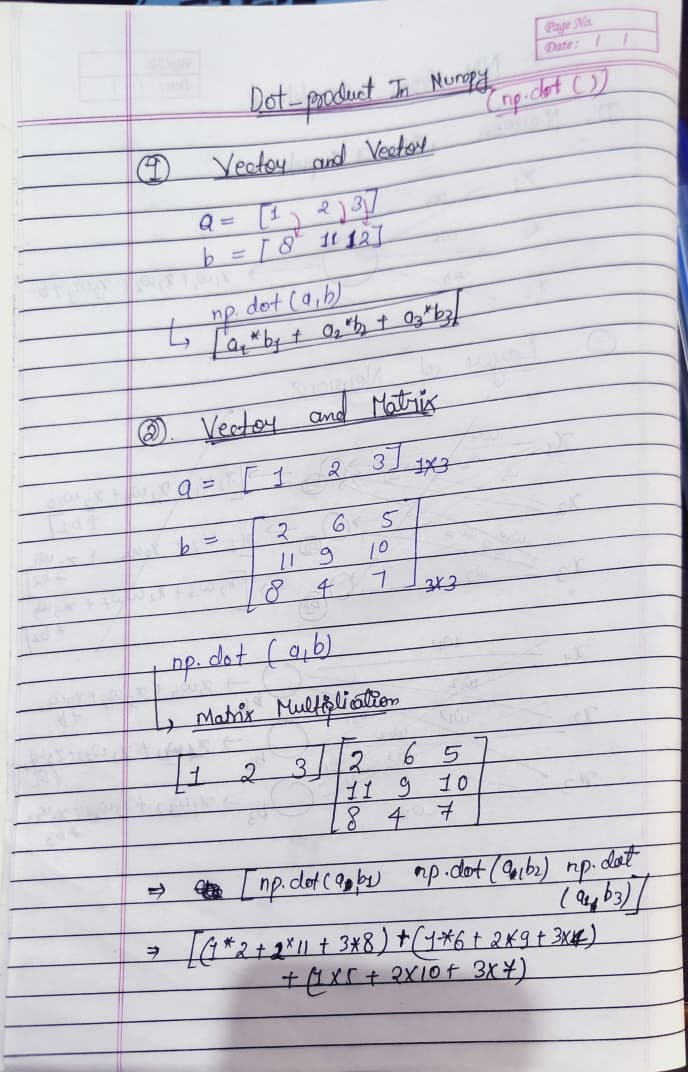 Page No.
Date: / /
Dot-product In Numpy (np.dot())
① Vector and Vector
a = [1 2 3]
b = [8 11 12]
np.dot(a,b)
↳ [a1*b1 + a2*b2 + a3*b3]
②. Vector and Matrix
a = [1 2 3] 1x3
b = [2 6 5
11 9 10
8 4 7] 3x3
np.dot (a,b)
↳ Matrix Multiplication
[1 2 3] [2 6 5
11 9 10
8 4 7]
⇒ [np.dot(a,b1) np.dot(a,b2) np.dot
(a,b3)]
⇒ [(1*2 + 2*11 + 3*8) + (1*6 + 2*9 + 3x4)
+ (1x5 + 2x10 + 3x7)